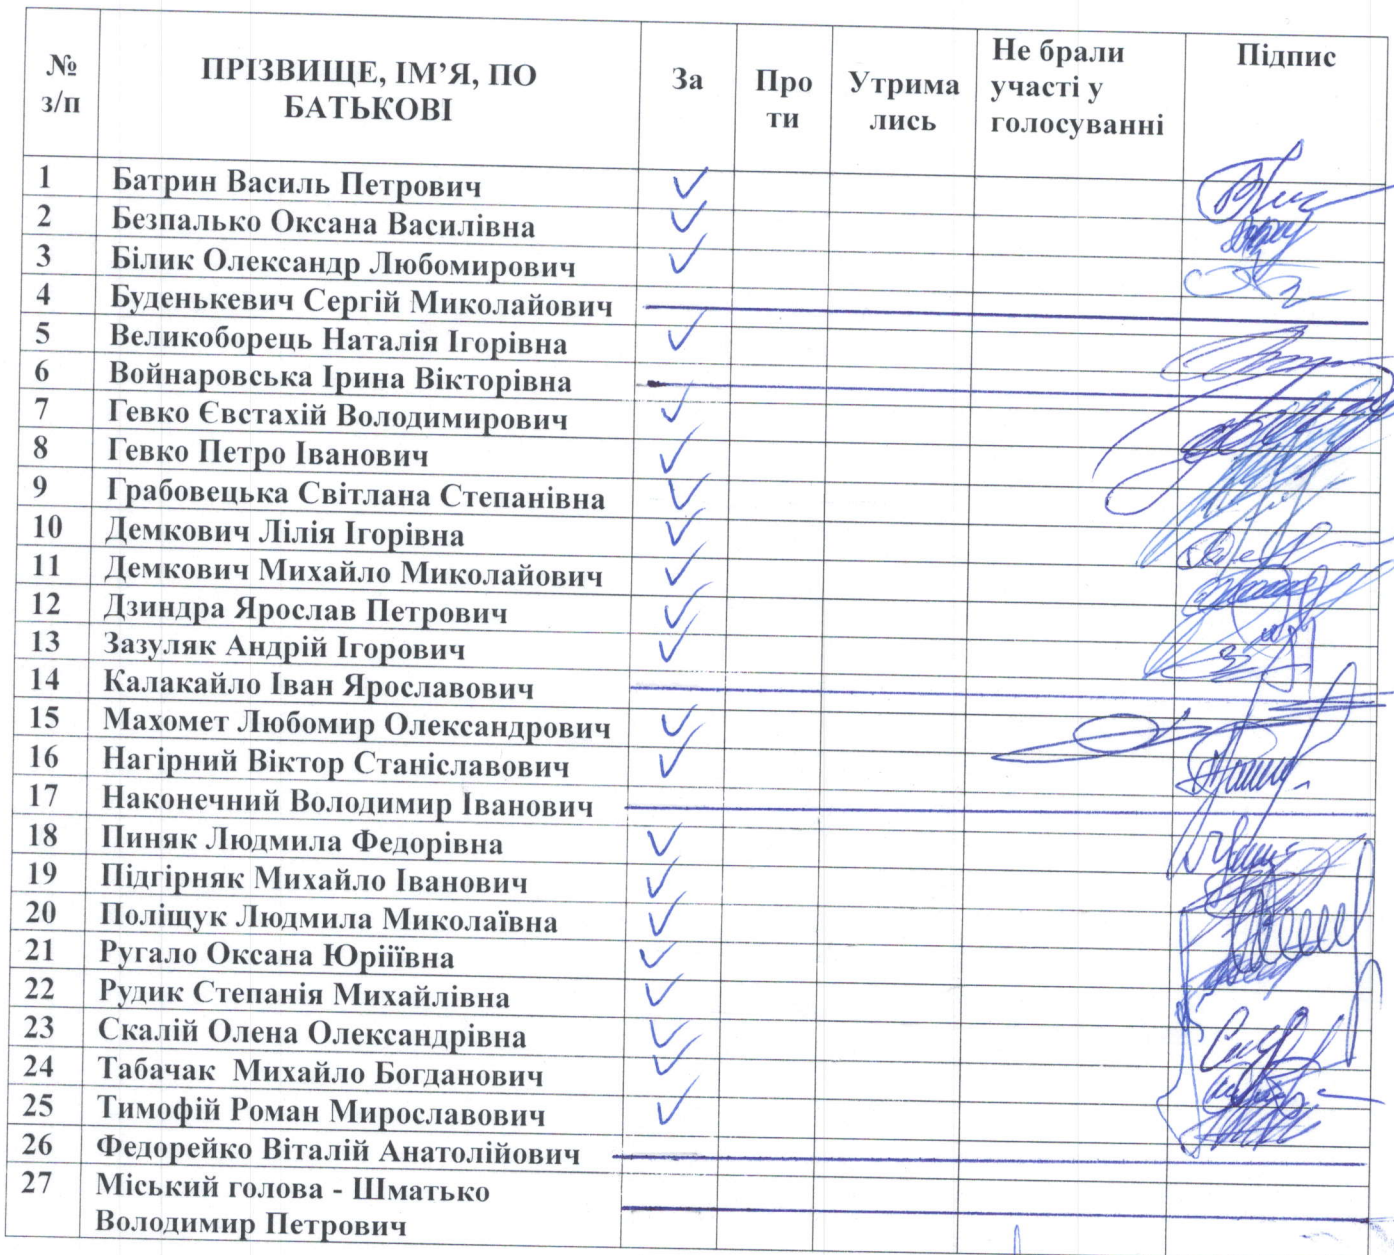 № з/п ПРІЗВИЩЕ, ІМ’Я, ПО БАТЬКОВІ За Про ти Утрима лись Не брали участі у голосуванні Підпис
1 Батрин Василь Петрович ✓
2 Безпалько Оксана Василівна ✓
3 Білик Олександр Любомирович ✓
4 Буденькевич Сергій Миколайович
5 Великоборець Наталія Ігорівна ✓
6 Войнаровська Ірина Вікторівна
7 Гевко Євстахій Володимирович ✓
8 Гевко Петро Іванович ✓
9 Грабовецька Світлана Степанівна ✓
10 Демкович Лілія Ігорівна ✓
11 Демкович Михайло Миколайович ✓
12 Дзиндра Ярослав Петрович ✓
13 Зазуляк Андрій Ігорович ✓
14 Калакайло Іван Ярославович
15 Махомет Любомир Олександрович ✓
16 Нагірний Віктор Станіславович ✓
17 Наконечний Володимир Іванович
18 Пиняк Людмила Федорівна ✓
19 Підгірняк Михайло Іванович ✓
20 Поліщук Людмила Миколаївна ✓
21 Ругало Оксана Юріїївна ✓
22 Рудик Степанія Михайлівна ✓
23 Скалій Олена Олександрівна ✓
24 Табачак Михайло Богданович ✓
25 Тимофій Роман Мирославович ✓
26 Федорейко Віталій Анатолійович
27 Міський голова - Шматько
Володимир Петрович